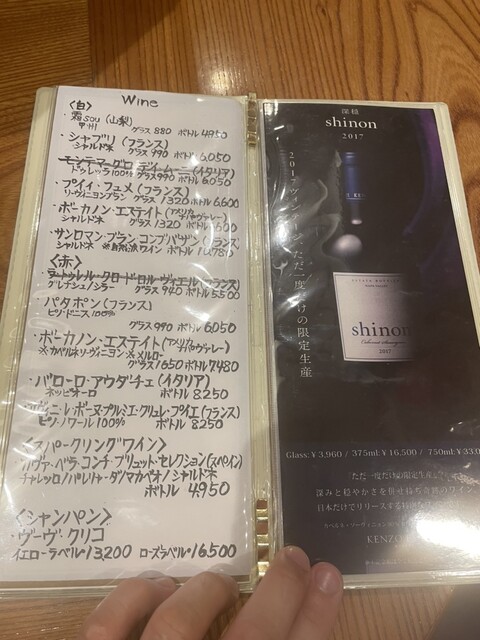 Wine
〈白〉
・霜sou (山梨)
甲州 グラス 880 ボトル 4950
・シャブリ (フランス)
シャルドネ グラス 990 ボトル 6,050
ドゥレッラ100% グラス990 ボトル 6,050
・プイィ・フュメ (フランス)
ソーヴィニヨンブラン グラス 1320 ボトル 6,600
・ボーカノン・エステイト (アメリカ
シャルドネ グラス 1320
・サンロマン・ブラン
シャルドネ ※自然派ワイン ボトル
〈赤〉
グルナシュ/シラー グラス 940 ボトル 5500
・パタポン (フランス)
ピノ・ドニス 100%
グラス 990 ボトル 6050
・ボーカノン・エステイト (アメリカ
※カベルネソーヴィニヨン ※メルロー
グラス 1650 ボトル 7480
・バローロ・アウダチェ (イタリア)
ネッビオーロ ボトル 8250
(フランス)
ピノ・ノワール 100% ボトル 8250
〈スパークリングワイン〉
・カヴァ・ベラ・コンチ・ブリュット・セレクション (スペイン)
チャレッロ/パレリャーダ/マカベオ/シャルドネ
ボトル 4,950
〈シャンパン〉
・ヴーヴ・クリコ
イエローラベル・13,200 ローズラベル・16,500
深穏
shinon
2017
2017ヴィンテージ、ただ一度だけの限定生産
shinon
Cabernet Sauvignon
2017
Glass:¥3,960 / 375ml:¥16,500 / 750ml:¥33,0
"ただ一度だけの限定生産"
深みと穏やかさを併せ持つ
日本だけでリリースする
KENZO